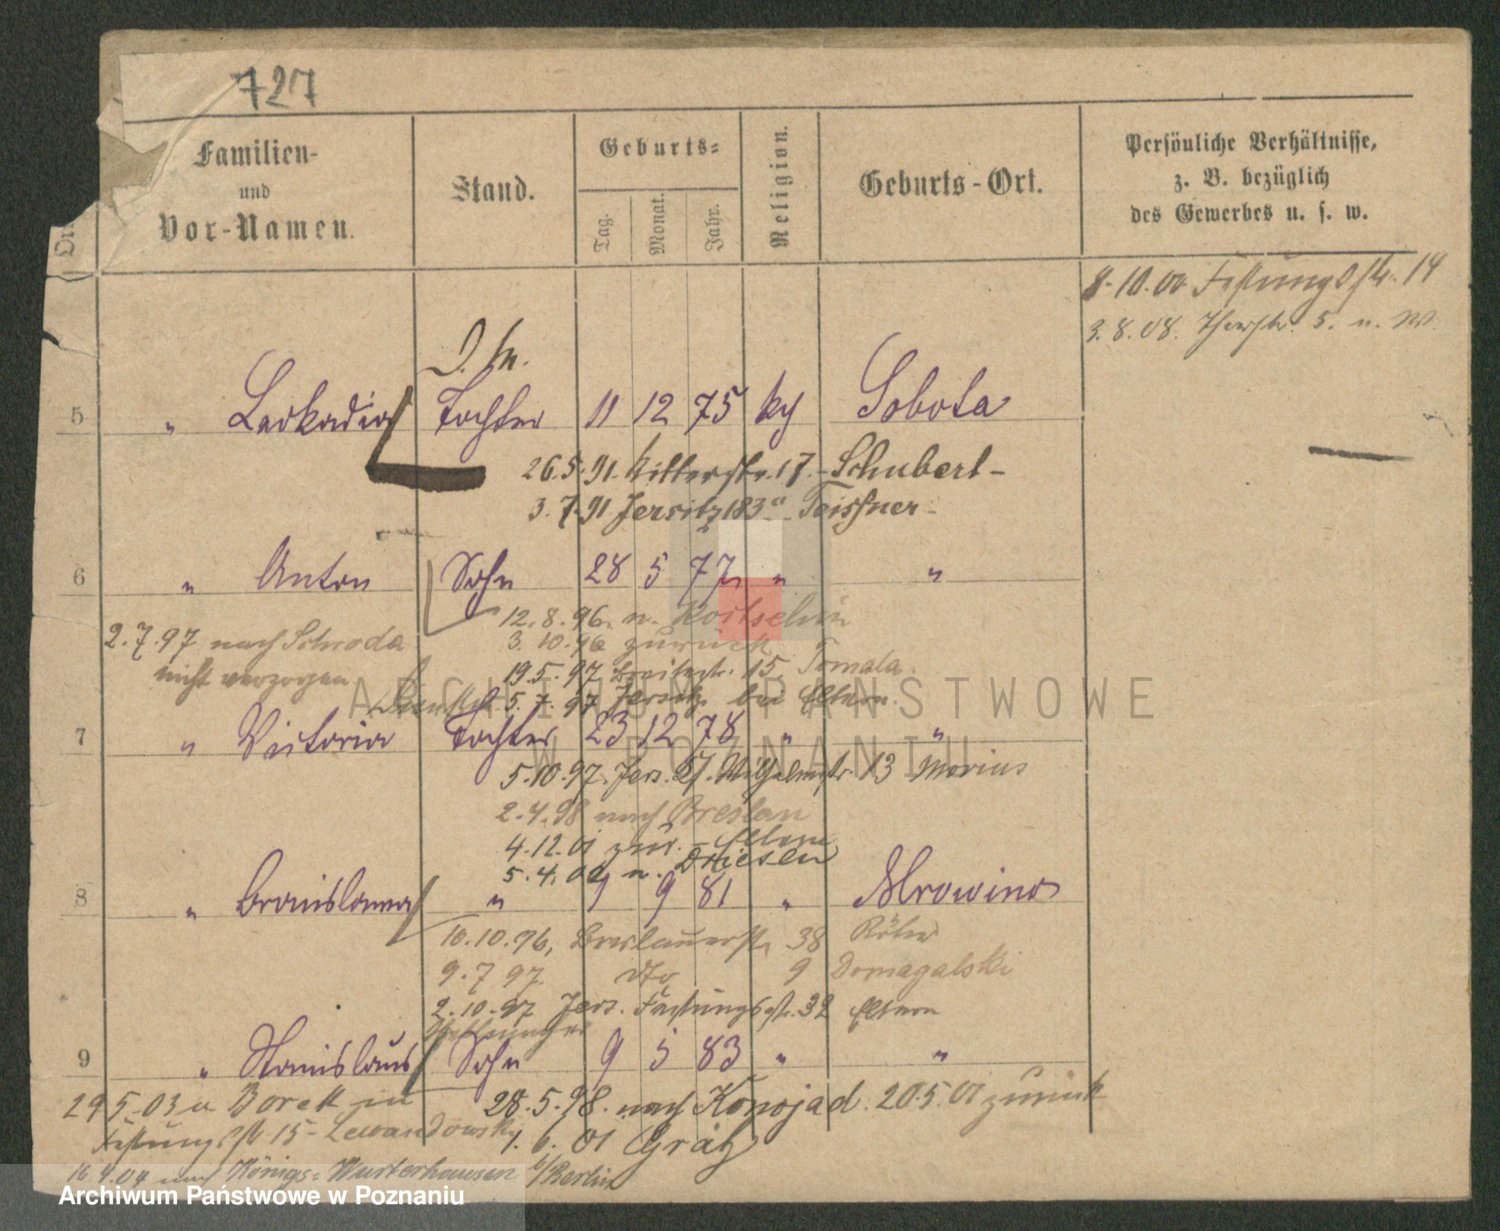 727
Familien-
und
Vor-Namen.
Stand.
Geburts-
Tag.
Monat.
Jahr.
Religion.
Geburts-Ort.
Persönliche Verhältnisse,
z. B. bezüglich
des Gewerbes u. s. w.
8.10.00 Festungsstr. 14
3.8.08.
5 " Leokadia Tochter 11 12 75 Sobota
26.5.91. Ritterstr. 17. - Schubert -
3.7.91 Jersitz 183a Teissner -
6 " Anton Sohn 28 5 77 " "
12.8.96. n. Koitschin
3.10.96 zurück
2.7.97 nach Schroda
nicht verzogen
19.5.97 Breitestr. 15 Tomala
5.7.97 Jersitz bei Eltern
7 " Victoria Tochter 23 12 78 " "
5.10.97. Jers. Wilhelmstr. 13 Morius
2.4.98 nach Breslau
4.12.01 zur. - Eltern
5.4.02 n. Driesen
8 " Bronislawa " 9 9 81 " Mrowino
10.10.96, Breslauerstr. 38
9.7.97. dto 9 Domagalski
2.10.97 Jers. Festungsstr. 32 Eltern
9 " Stanislaus Sohn 9 5 83 " "
28.5.98. nach Konojad. 20.5.01 zurück
29 5.03 n Borek
Festungsstr 15 - Lewandowski
1.6.01 Grätz
16.4.04 nach Königs-Wusterhausen b/Berlin
ARCHIWUM PAŃSTWOWE
W POZNANIU
Archiwum Państwowe w Poznaniu